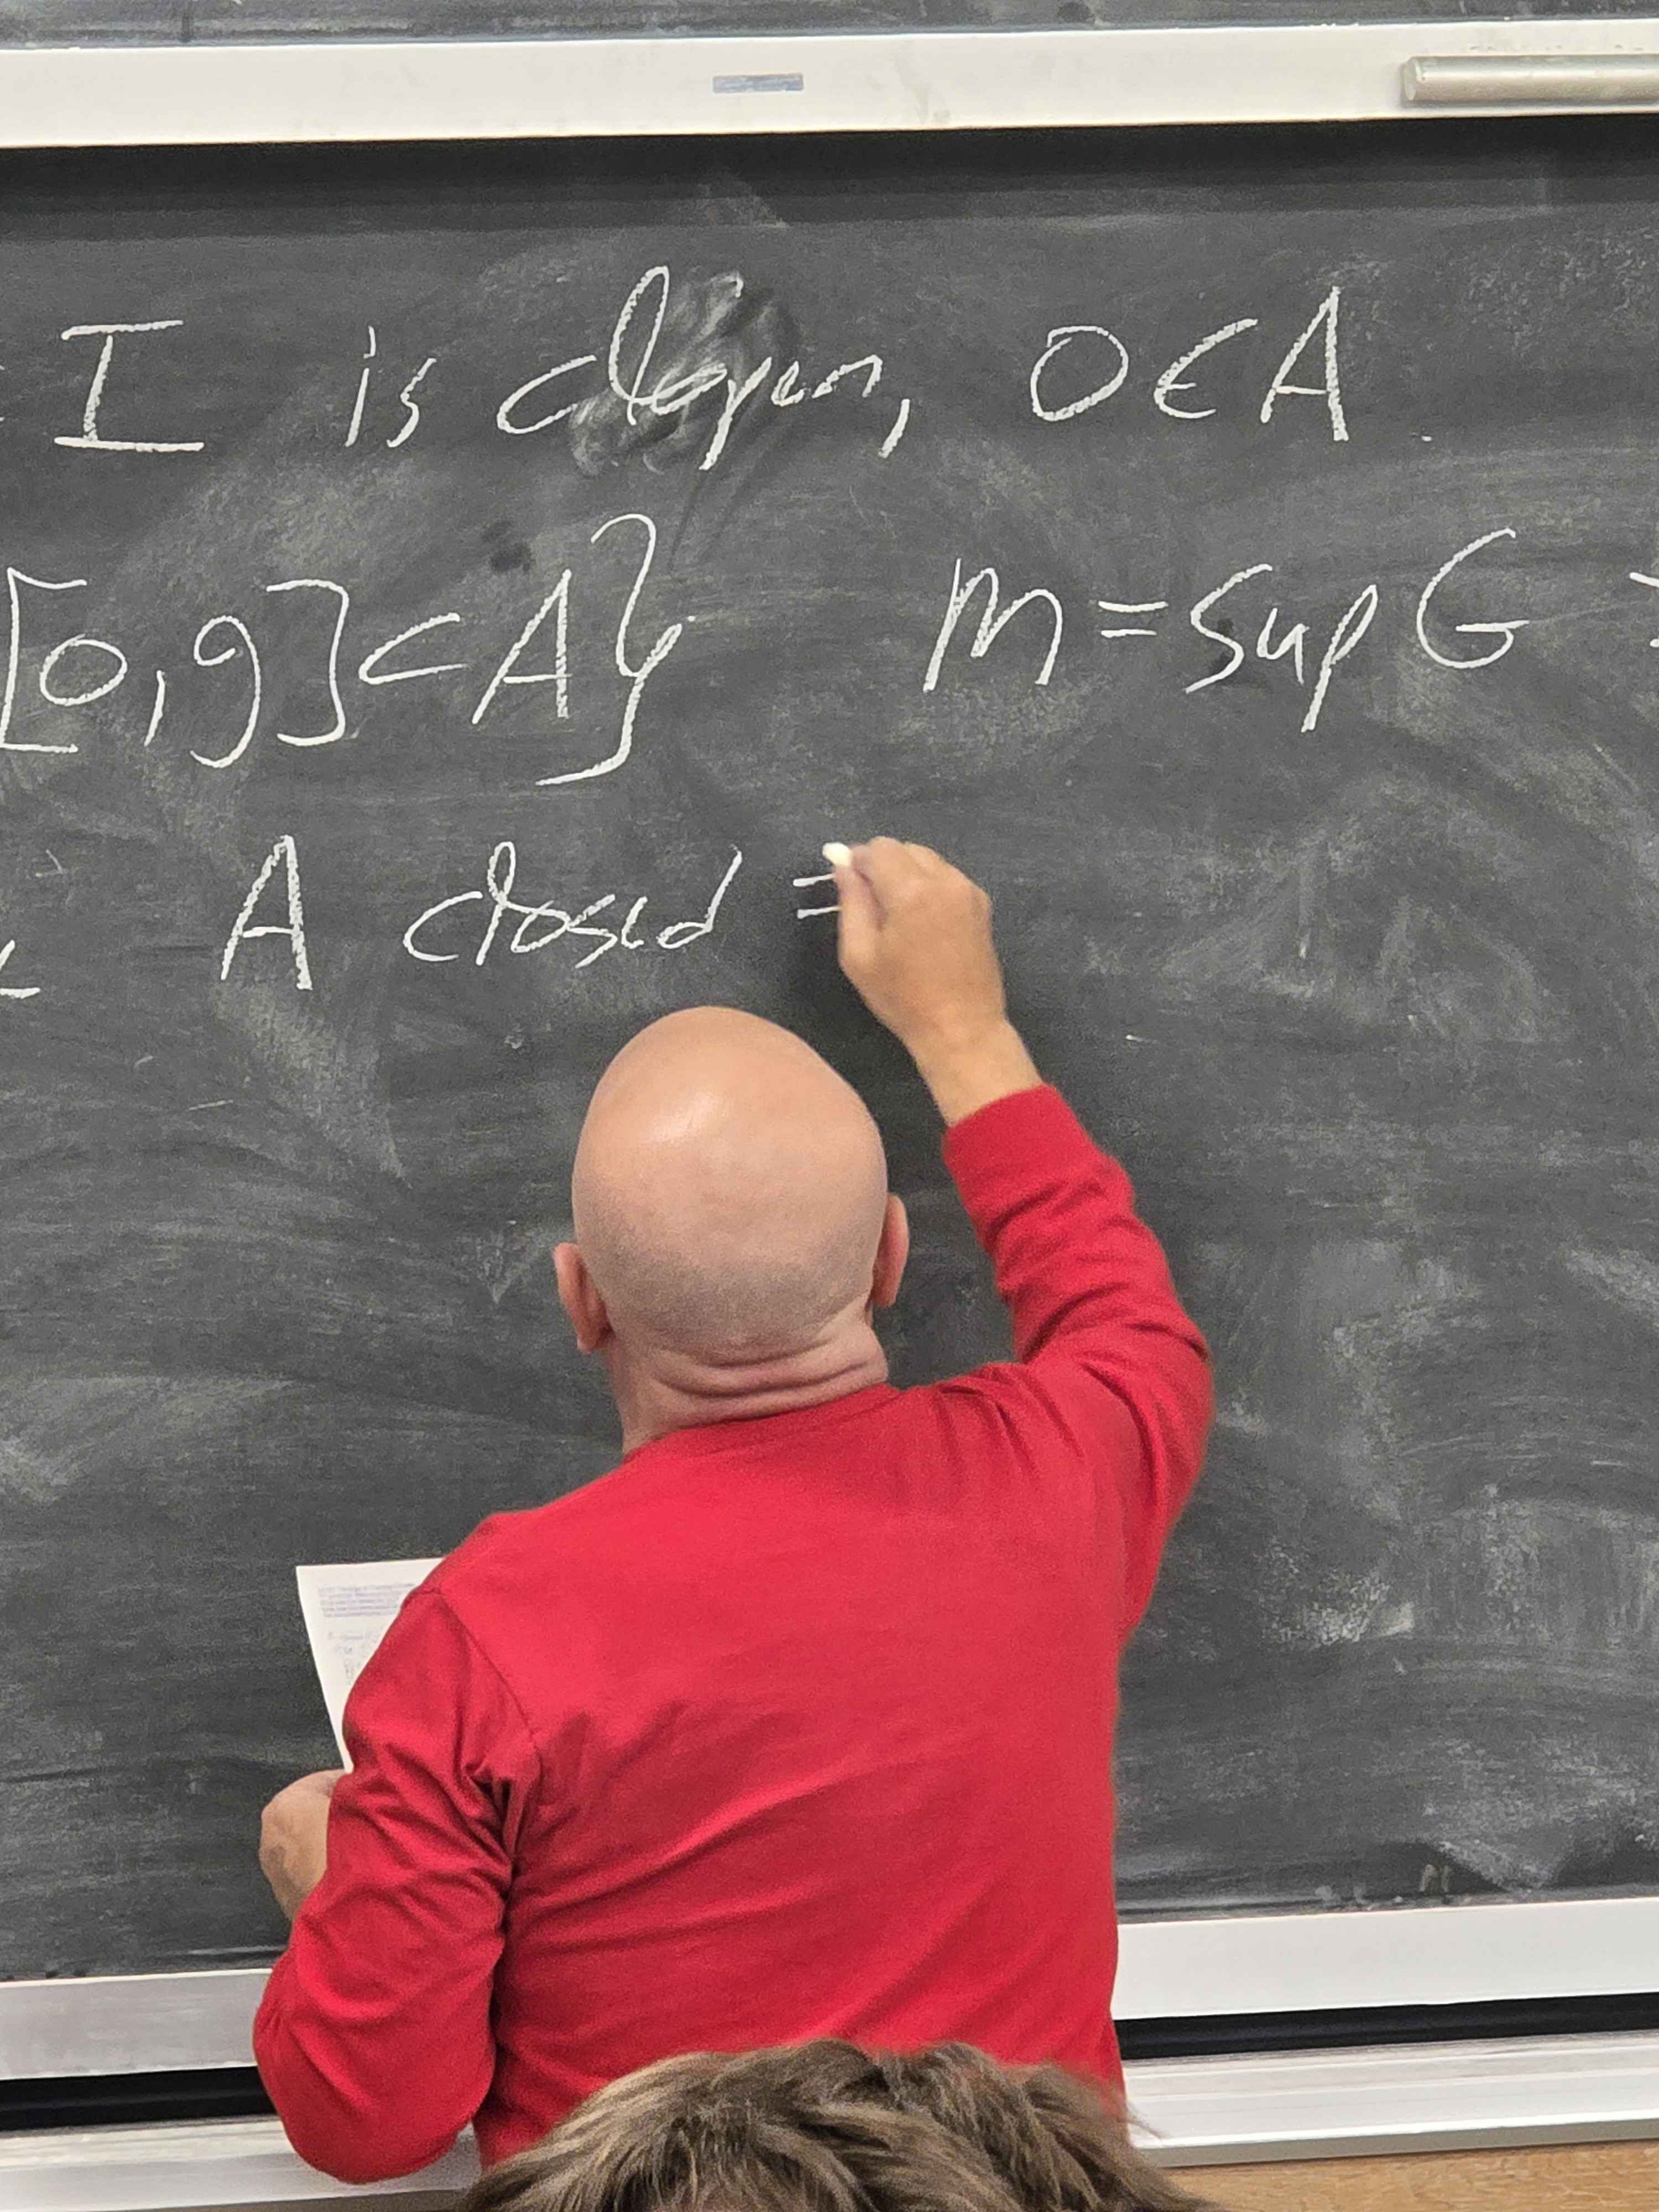 I is clopen, 0∈A.
[0,g]⊂A} m=sup G
A closed =